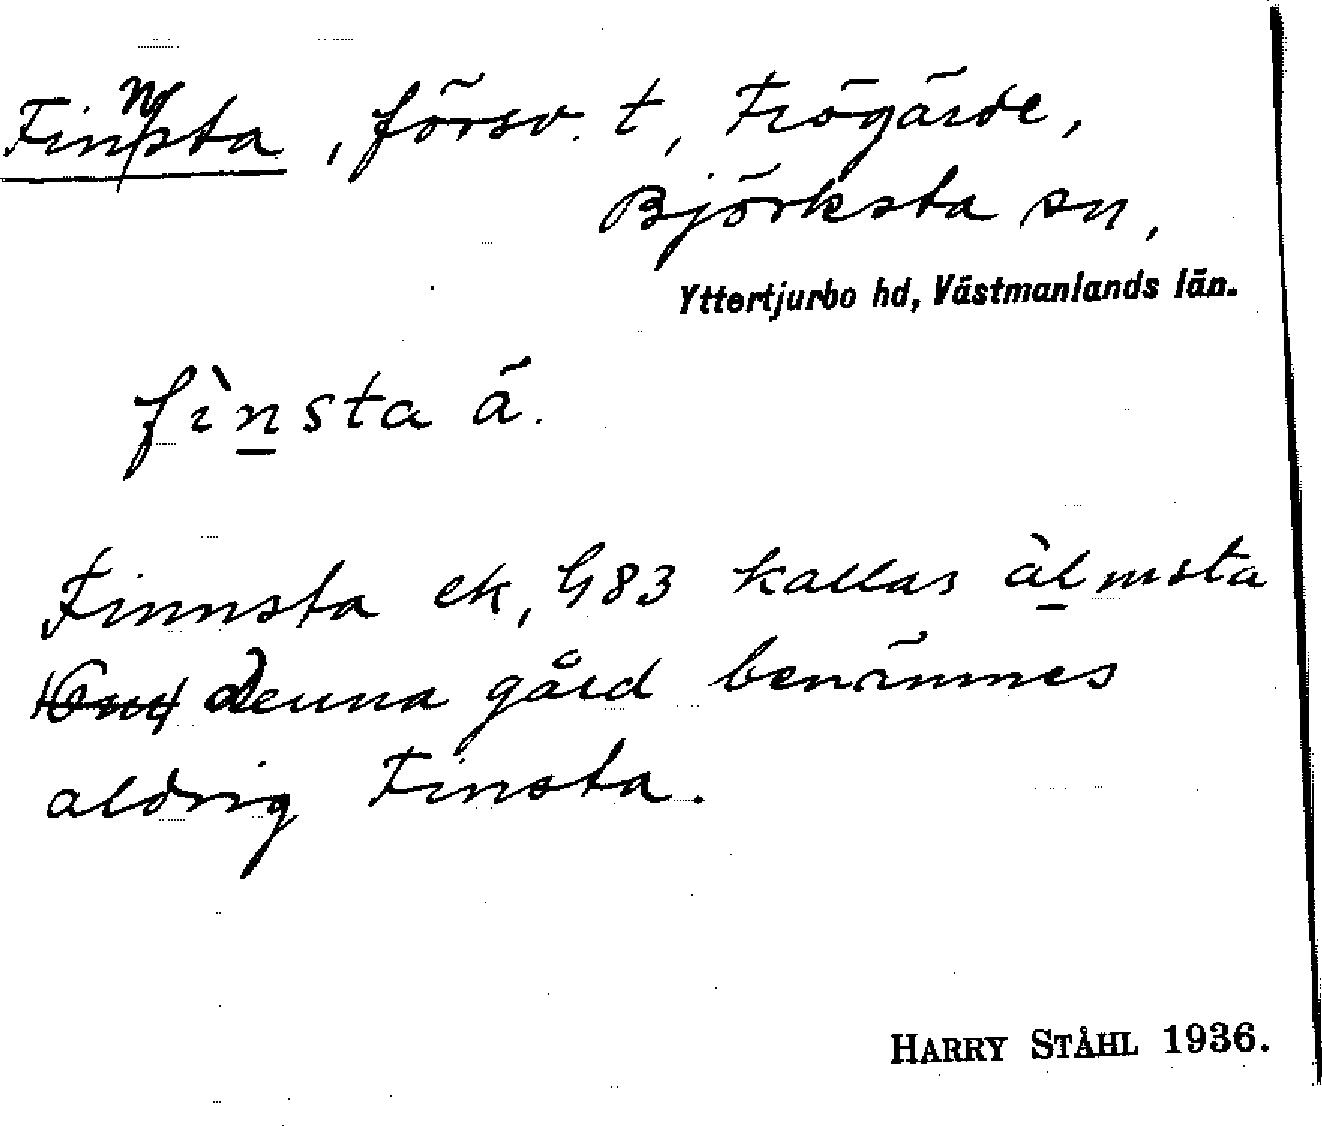 Finnsta, försv. t, Frögärde,
Björksta sn,
Yttertjurbo hd, Västmanlands län.
fìnsta ä.
Finnsta ek, G83 kallas àlmsta
denna gård benämnes
aldrig Finsta.
HARRY STÅHL 1936.